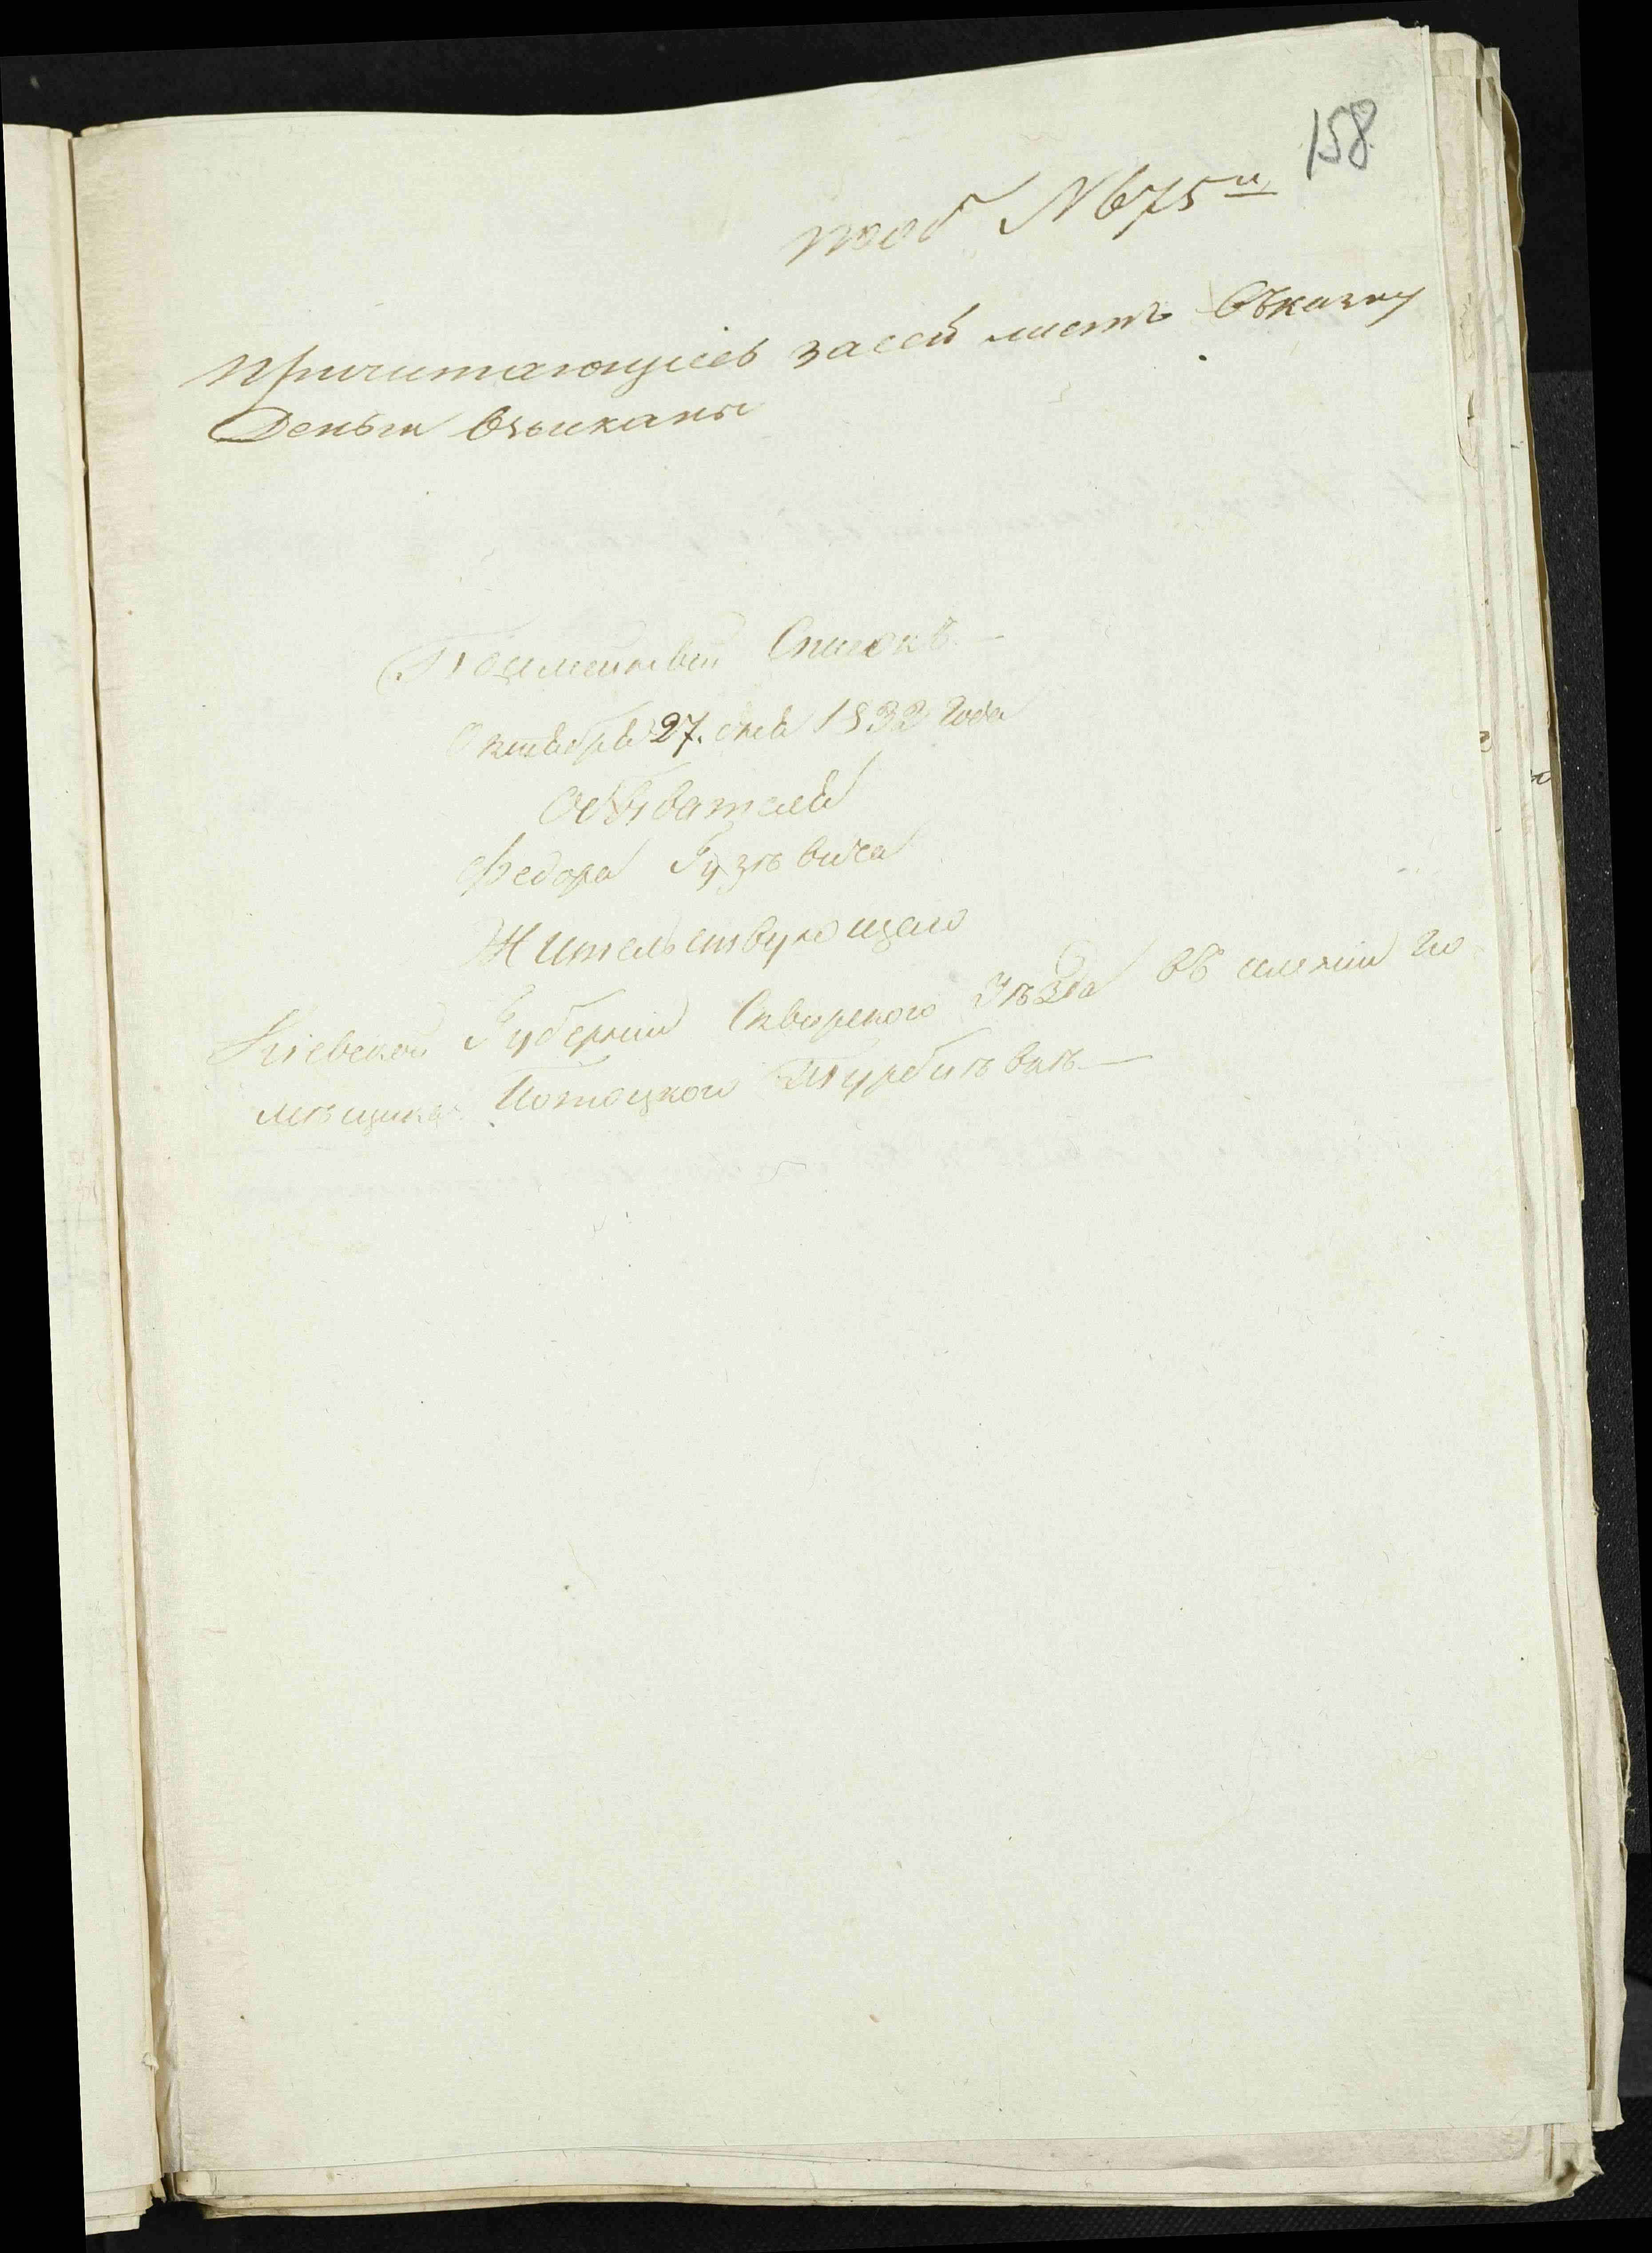 158
поб N 675й
Причитающіесь засей листъ въказну
Деньги взысканы
Поименный Списокъ
Октября 27. дня 1832 года
Обывателя
Федора Гузѣвича
Жительствующаго
Кіевской Губерніи Сквирского Уѣзда въ имении по
мѣщика Потоцкого